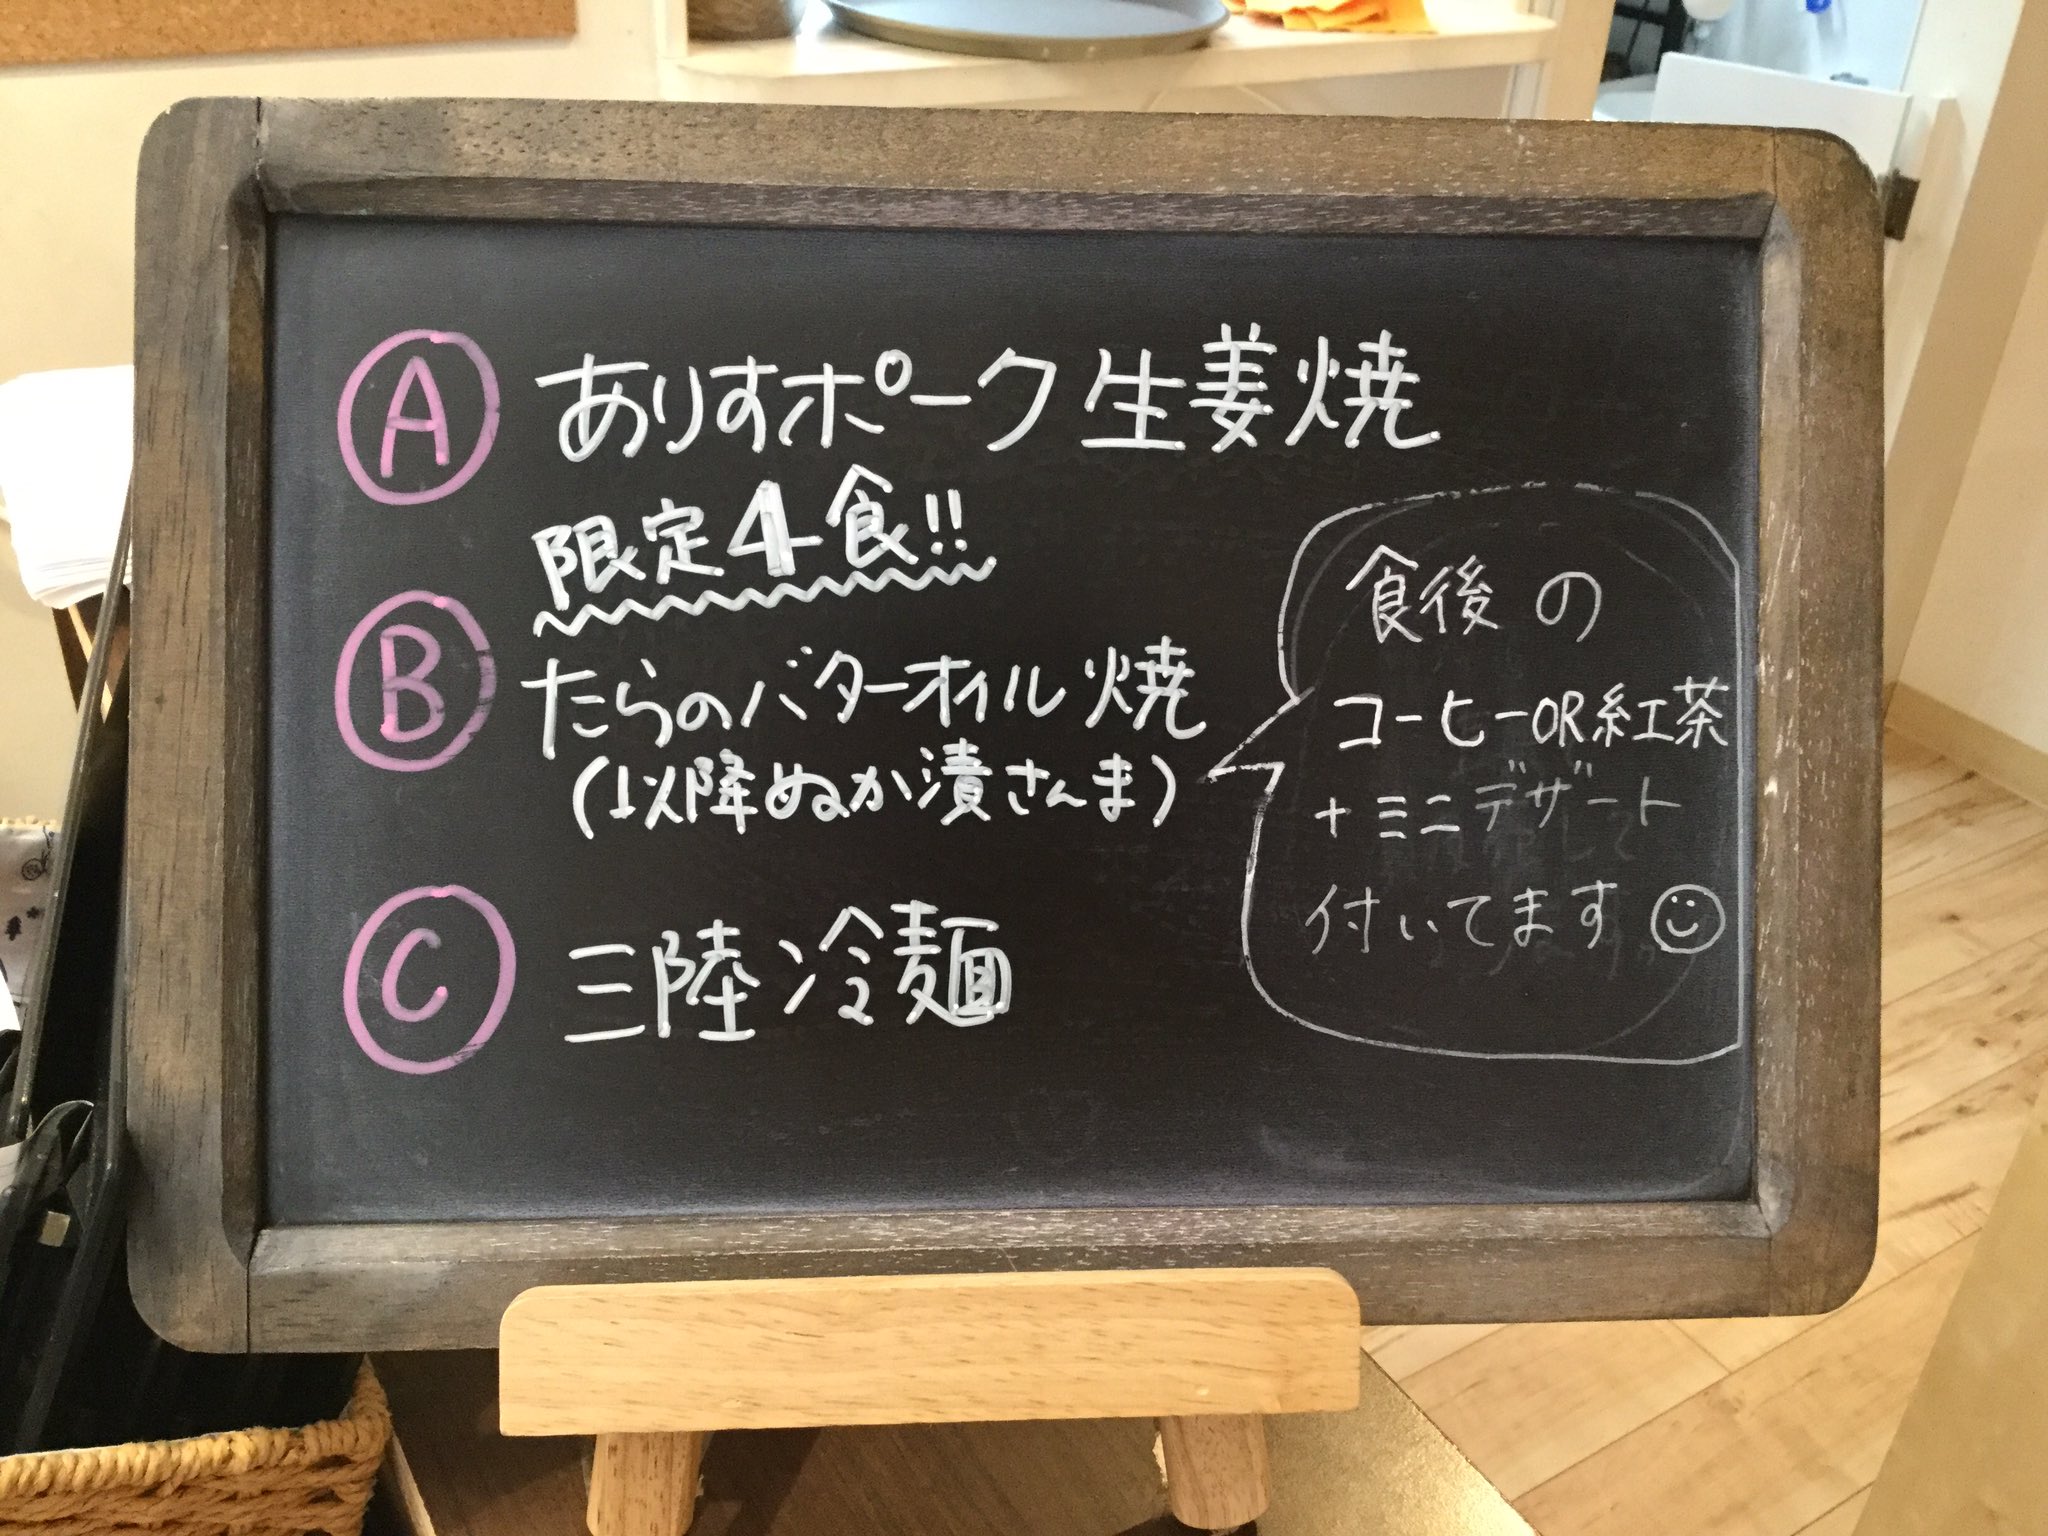 A ありすポーク生姜焼
限定4食!!
B たらのバターオイル焼
(以降ぬか漬さんま)
C 三陸冷麺
食後の
コーヒーOR紅茶
+ミニデザート
付いてます